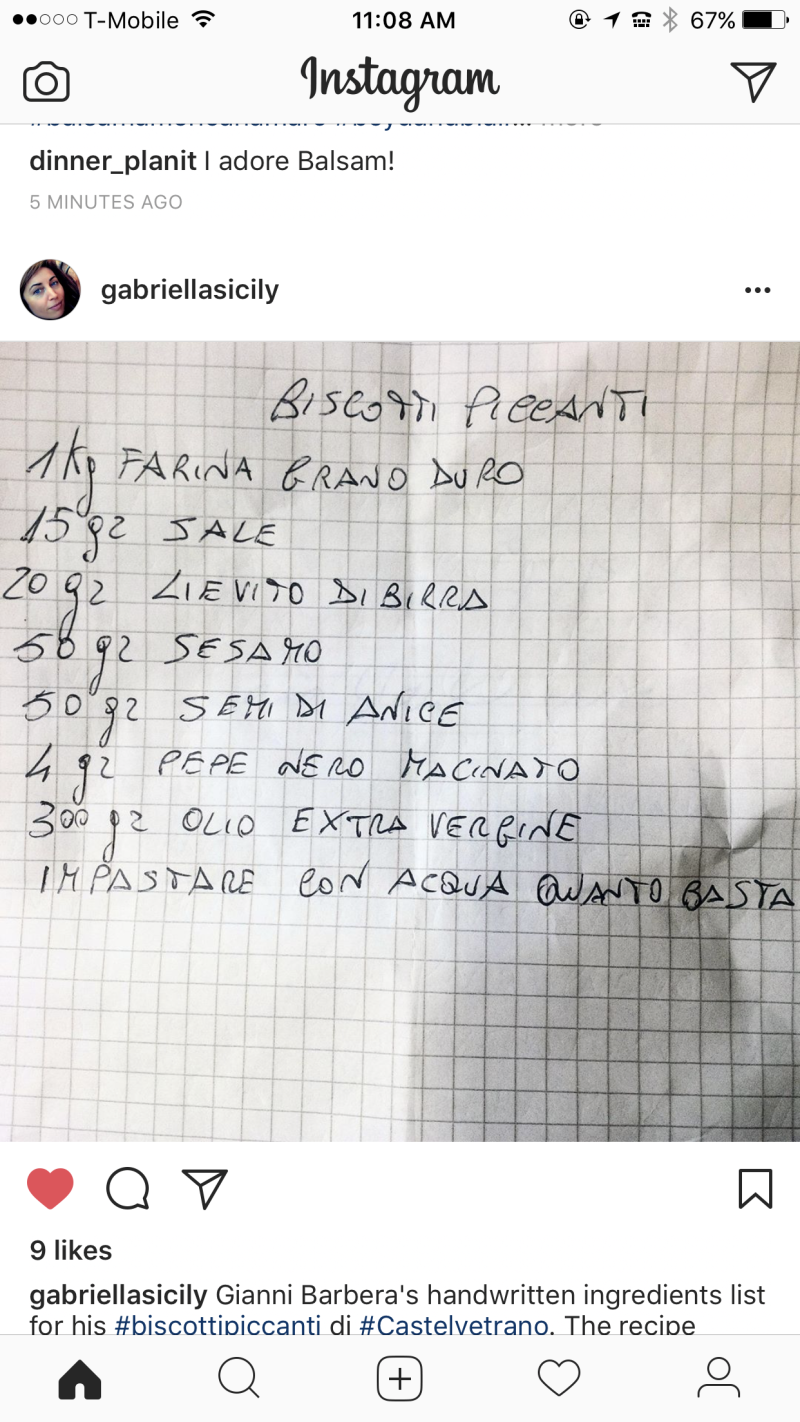 T-Mobile 11:08 AM 67%
Instagram
dinner_planit I adore Balsam!
5 MINUTES AGO
gabriellasicily
BISCOTTI PICCANTI
1kg FARINA GRANO DURO
15 gz SALE
20 gz LIEVITO DI BIRRA
50 gz SESAMO
50 gz SEMI DI ANICE
4 gz PEPE NERO MACINATO
300 gz OLIO EXTRA VERGINE
IMPASTARE CON ACQUA QUANTO BASTA
9 likes
gabriellasicily Gianni Barbera's handwritten ingredients list
for his #biscottipiccanti di #Castelvetrano. The recipe